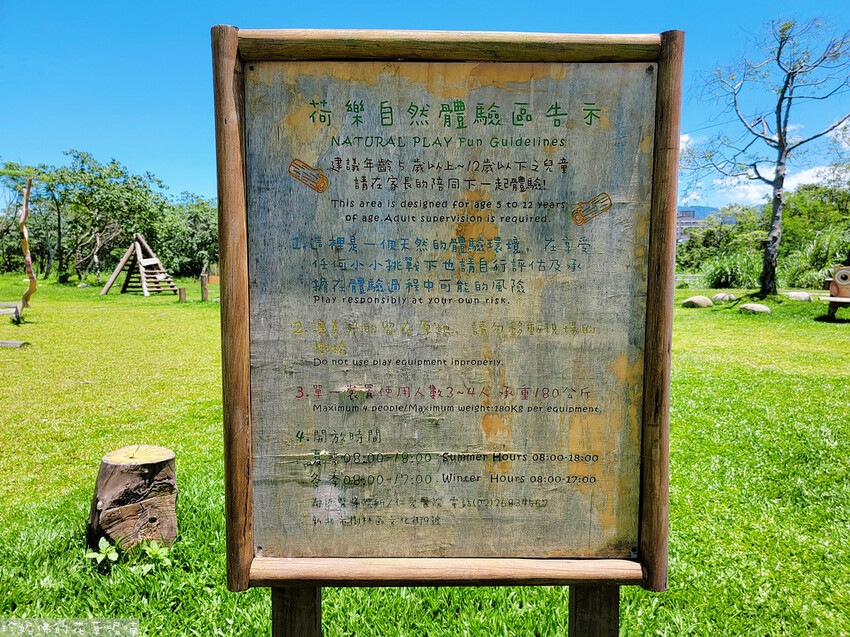 荷樂自然體驗區告示
NATURAL PLAY Fun Guidelines
建議年齡5歲以上~12歲以下之兒童
請在家長的陪同下一起體驗!
This area is designed for age 5 to 12 years
of age. Adult supervision is required.
1. 這裡是一個天然的體驗環境、在享受
任何小小挑戰下也請自行評估及承
擔在體驗過程中可能的風險
Play responsibly at your own risk.
2. 讓美好的留在原地、請勿移動現場的
Do not use play equipment inproperly.
3. 單一裝置使用人數3~4人 承重180公斤
Maximum 4 people/Maximum weight:180Kg per equipment.
4. 開放時間
夏季08:00-18:00 Summer Hours 08:00-18:00
冬季08:00-17:00 Winter Hours 08:00-17:00